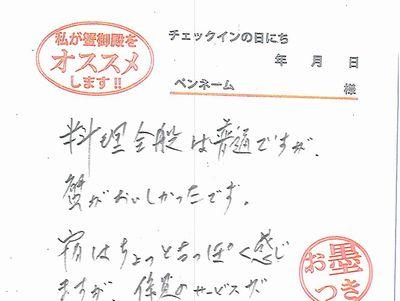 私が蟹御殿を
オススメ
します!!
チェックインの日にち
年 月 日
ペンネーム 様
料理全般は普通ですが、
蟹がおいしかったです。
宿はちょっと古っぽく感じ
ますが、係員のサービスが
お墨
つき